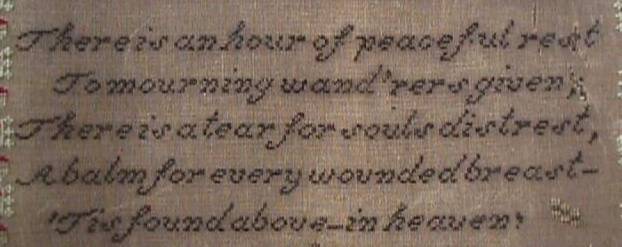 There is an hour of peaceful rest
To mourning wand'rers given;
There is a tear for souls distrest,
A balm for every wounded breast–
'Tis found above–in heaven.